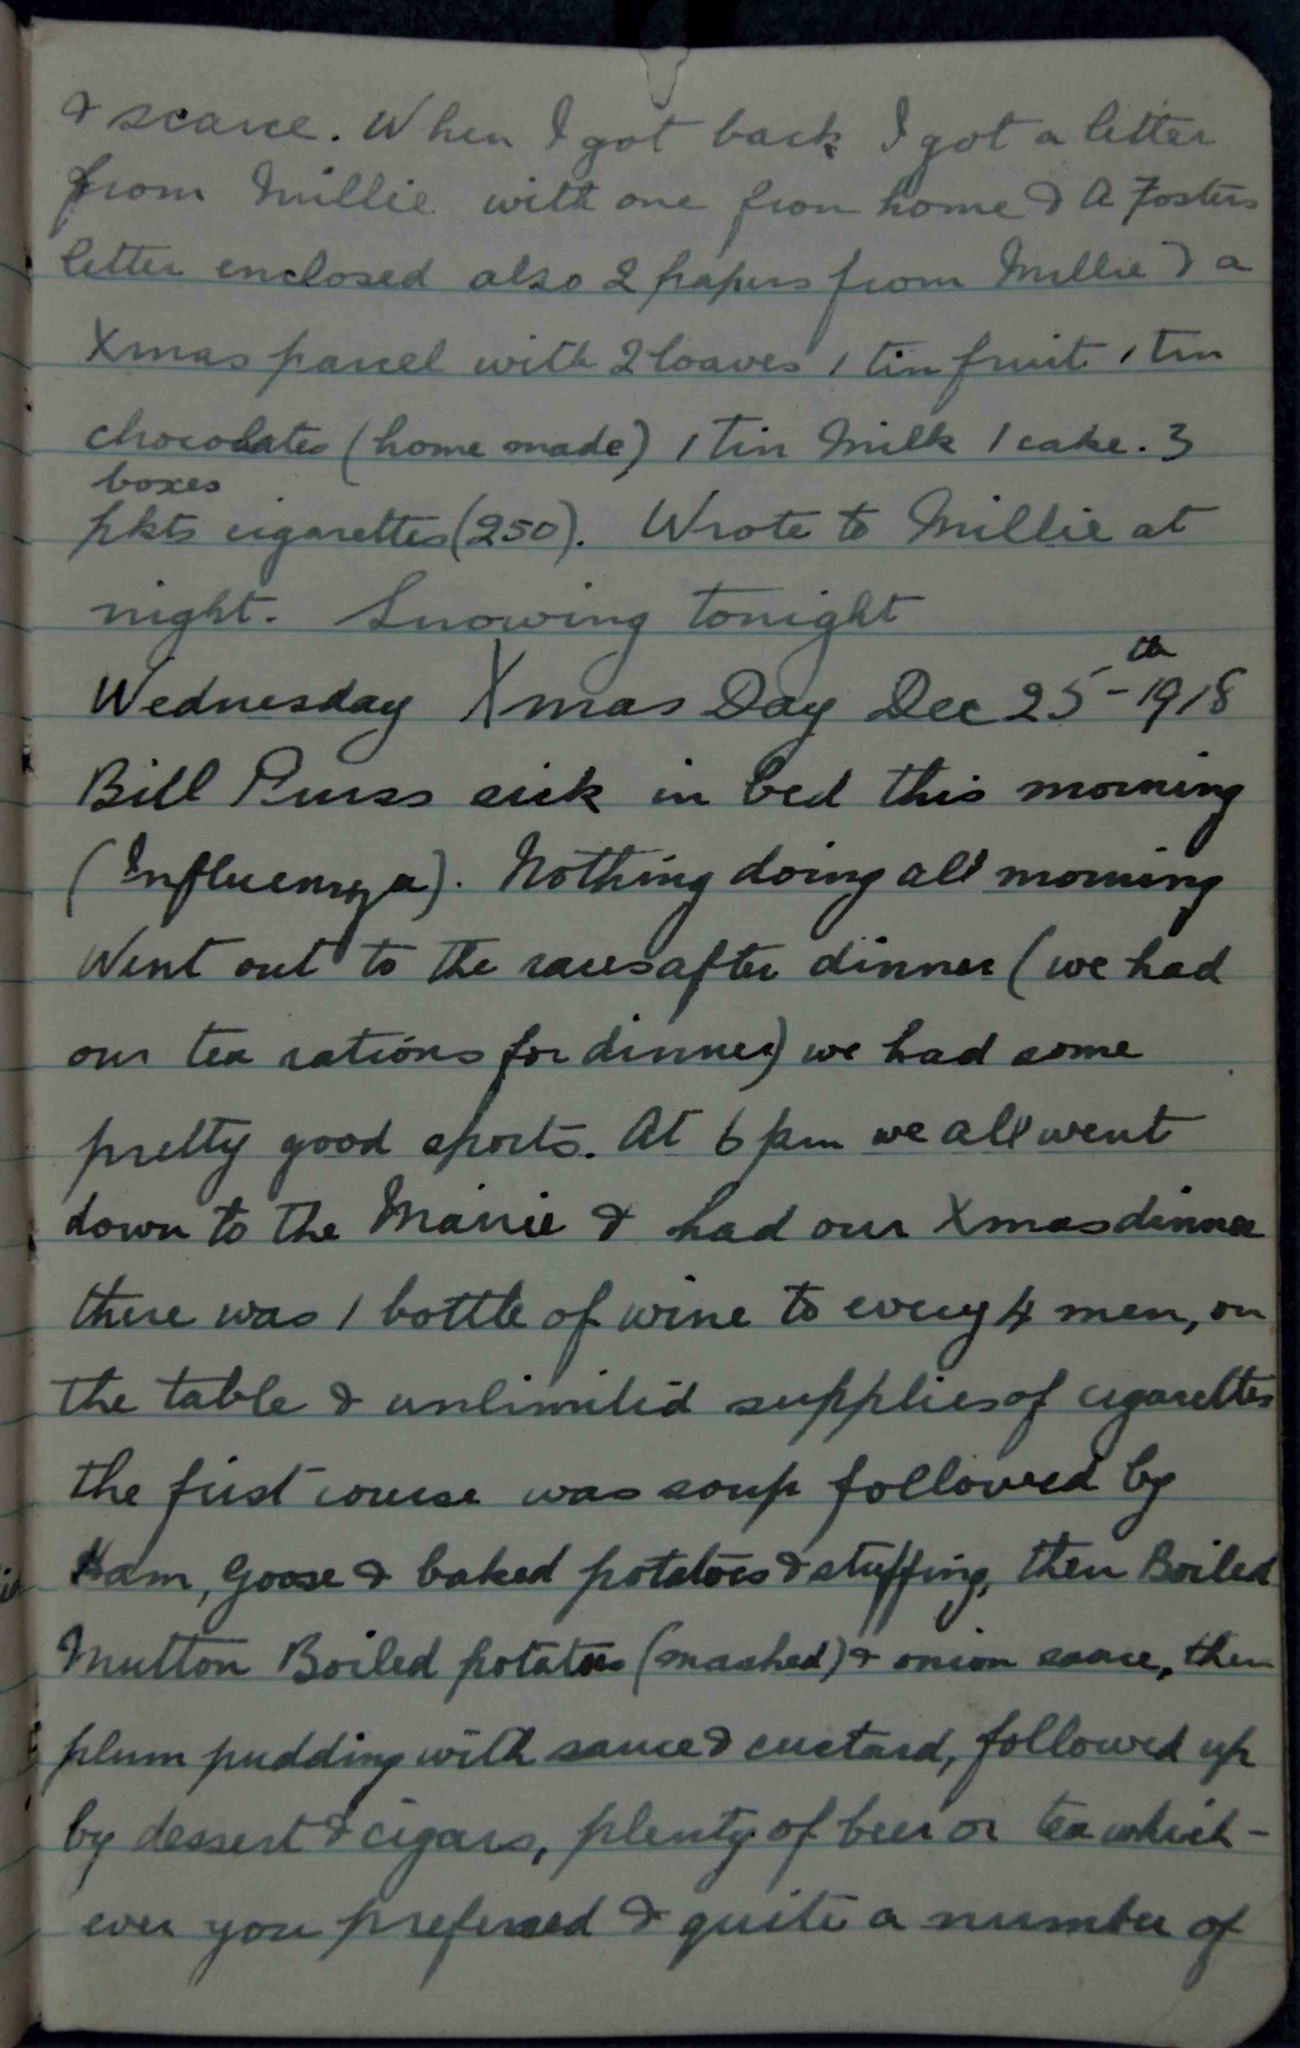 & scarce. When I got back I got a letter
from Millie with one from home & A Fosters
letter enclosed also 2 papers from Millie & a
Xmas parcel with 2 loaves 1 tin fruit 1 tin
chocolates (home made) 1 tin Milk 1 cake. 3
boxes
pkts cigarettes (250). Wrote to Millie at
night. Snowing tonight
Wednesday Xmas Day Dec 25th 1918
Bill Purss sick in bed this morning
(Influenza). Nothing doing all morning
Went out to the races after dinner (we had
our tea rations for dinner) we had some
pretty good sports. At 6 pm we all went
down to the Mairie & had our Xmas dinner
there was 1 bottle of wine to every 4 men, on
the table & unlimitid supplies of cigarettes
the first course was soup followed by
Ham, Goose & baked potatoes & stuffing, then Boiled
Mutton Boiled potatoes (mashed) & onion sauce, then
plum pudding with sauce & custard, followed up
by dessert & cigars, plenty of beer or tea which-
ever you preferred & quite a number of